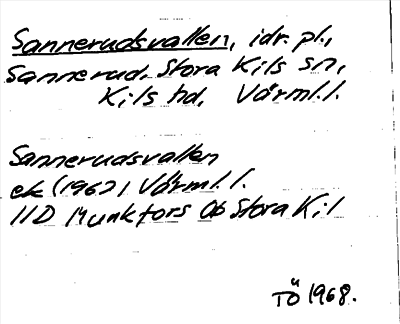 Sannerudsvallen, idr. pl.,
Sannerud, Stora Kils sn,
Kils hd, Värml. l.
Sannerudsvallen
ek (1962) Värml. l.
11D Munkfors Ob Stora Kil
TÖ 1968.